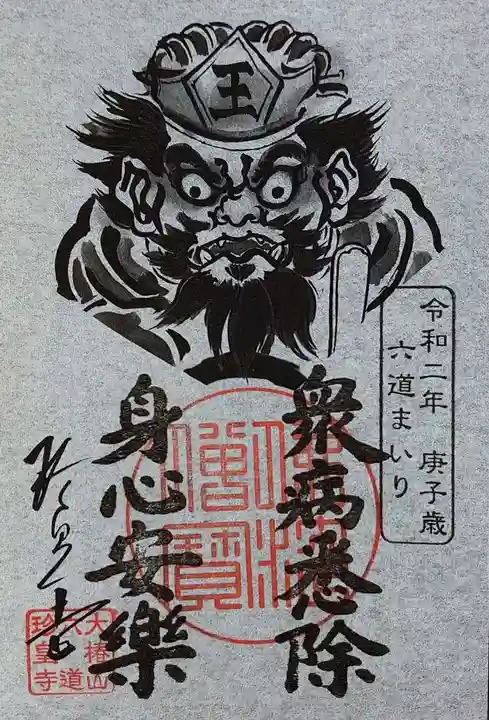 王
令和二年 庚子歳
六道まいり
衆病悉除
身心安樂
佛法
僧寳
珍皇寺
大椿山
六道
珍皇寺